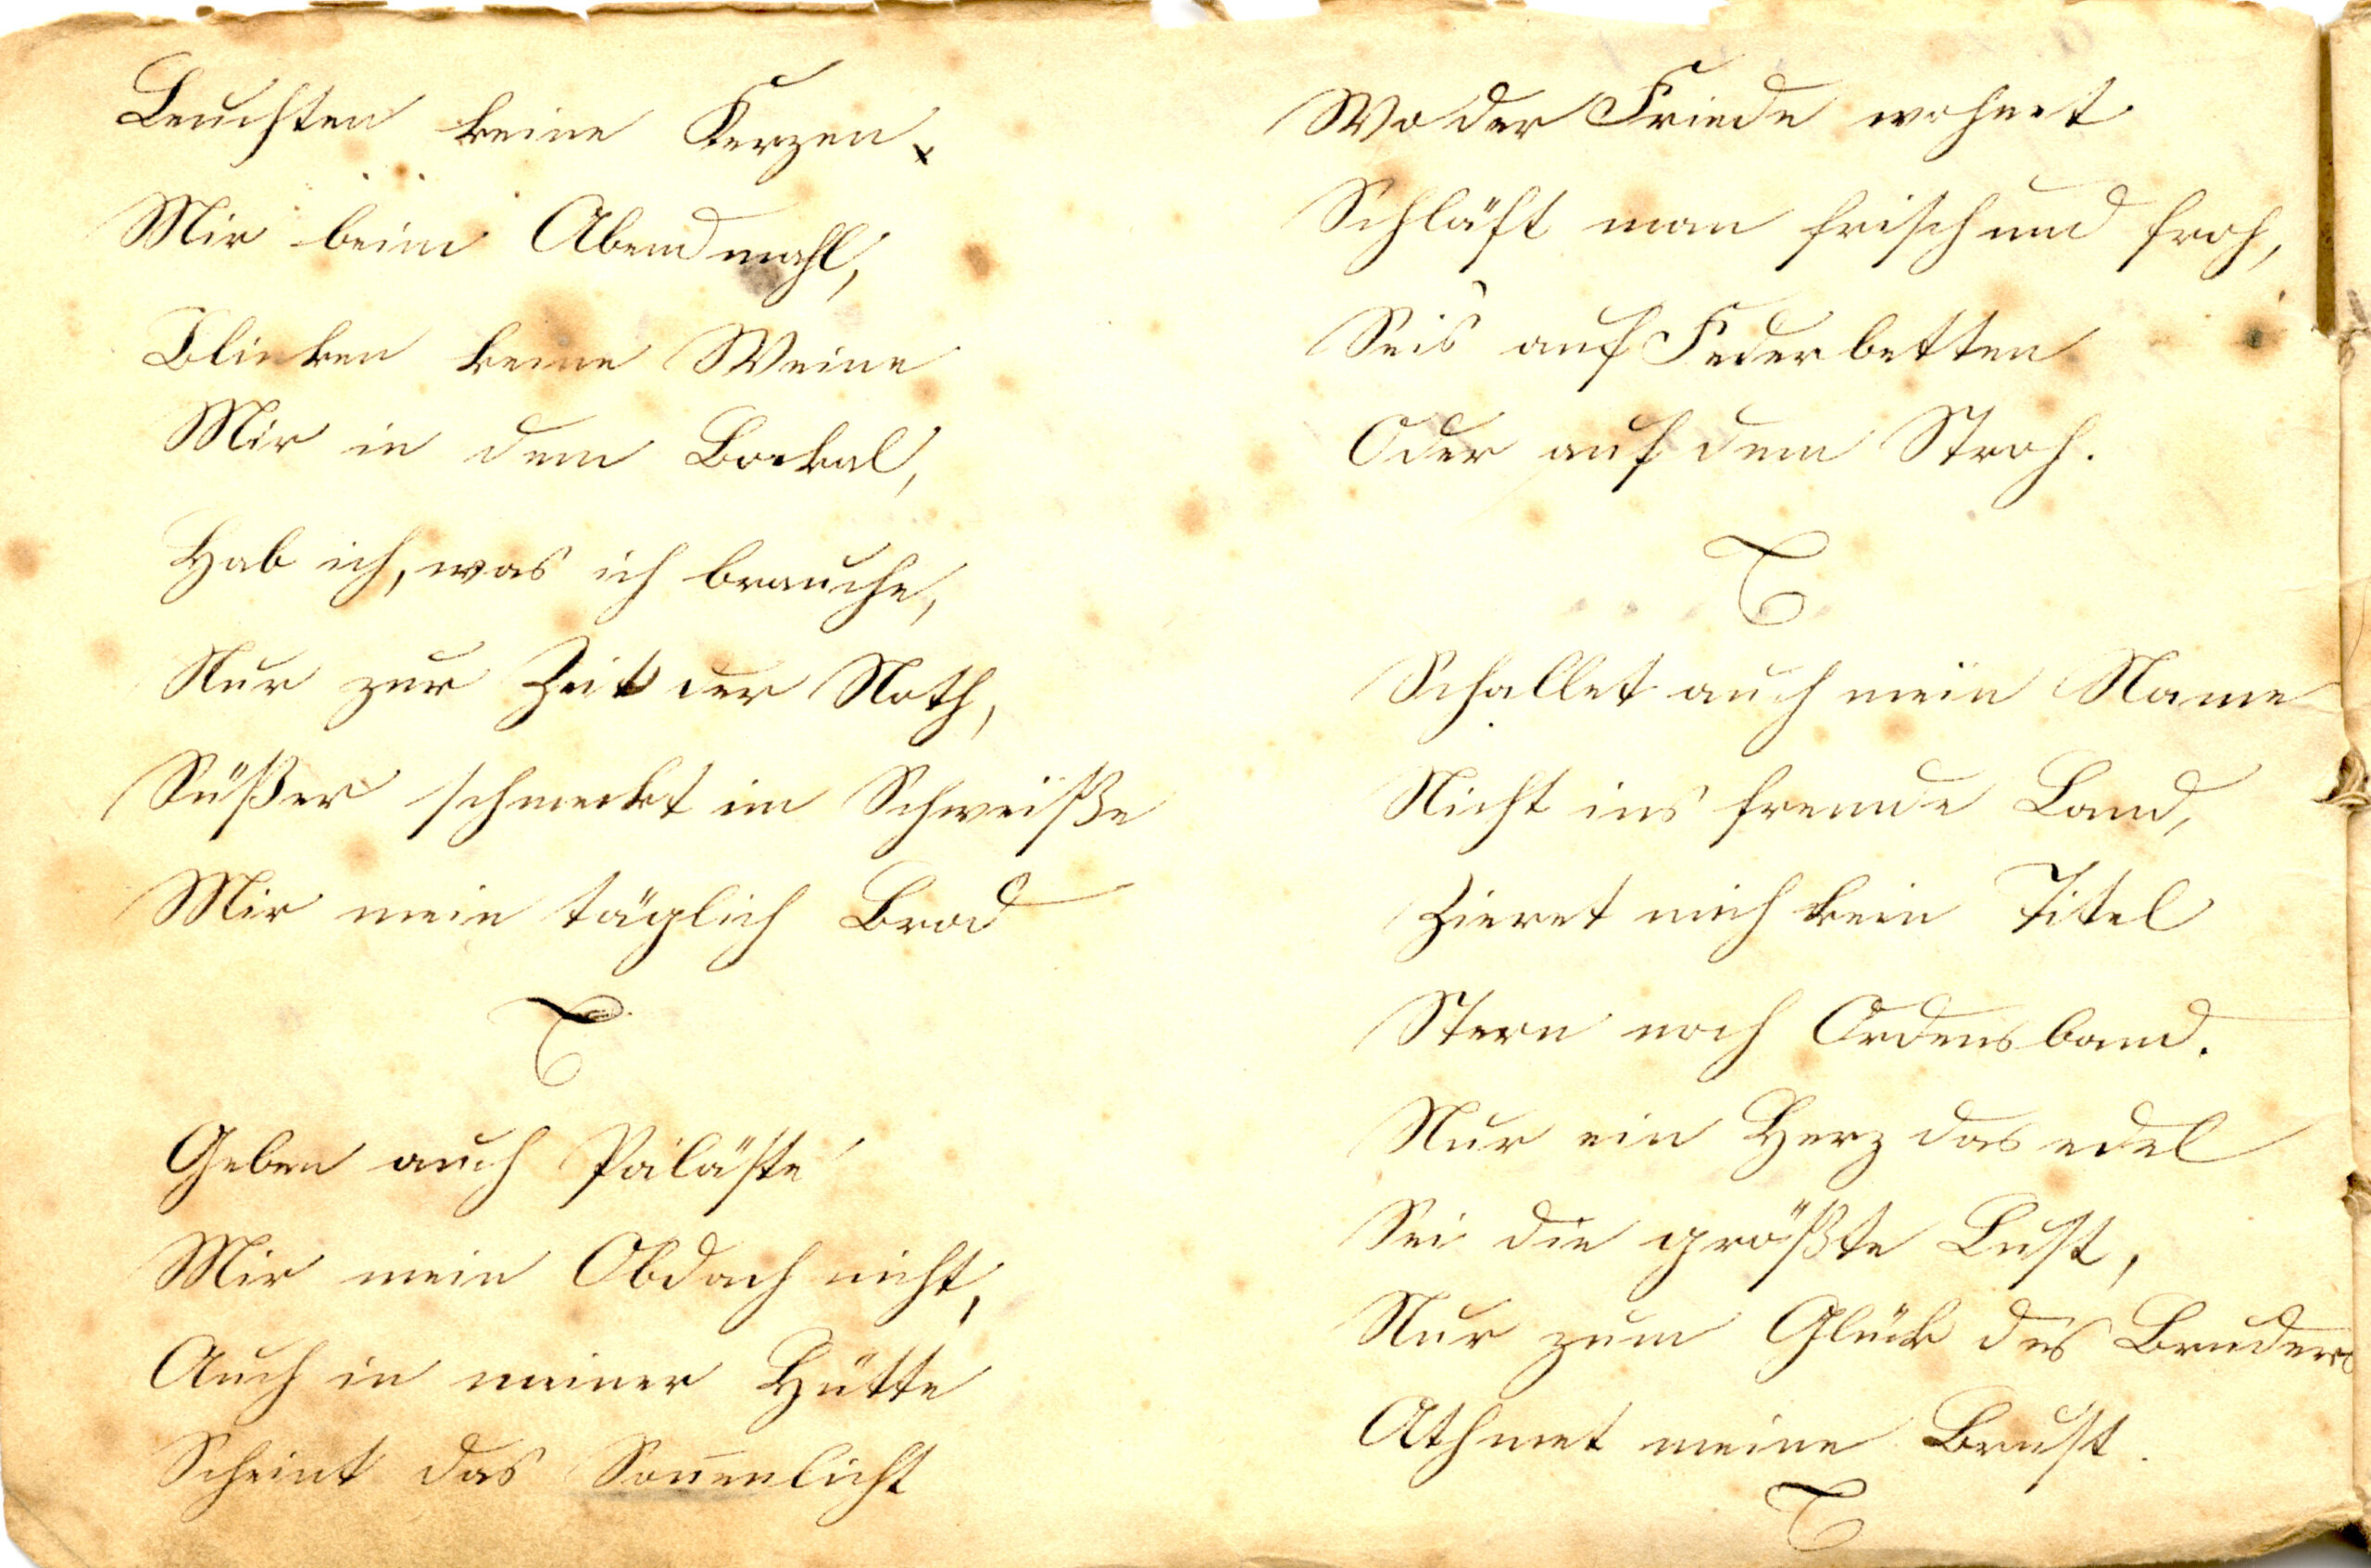 Leuchten keine Kerzen
Mir beim Abendmahl,
Blinken keine Weine
Mir in dem Bockal,
Hab ich, was ich brauche,
Nur zur Zeit der Noth,
Süßer schmeckt im Schweiße
Mir mein täglich Brod
Geben auch Paläste
Mir mein Obdach nicht,
Auch in meiner Hütte
Scheint das Sonnenlicht
Wo der Friede wohnet
Schläft man frisch und froh,
Seis auf Federbetten
Oder auf dem Stroh.
Schallet auch mein Name
Nicht ins fremde Land,
Zieret mich kein Titel
Stern noch Ordensband.
Nur ein Herz das edel
Sei die größte Lust,
Nur zum Glück des Bruders
Athmet meine Brust.